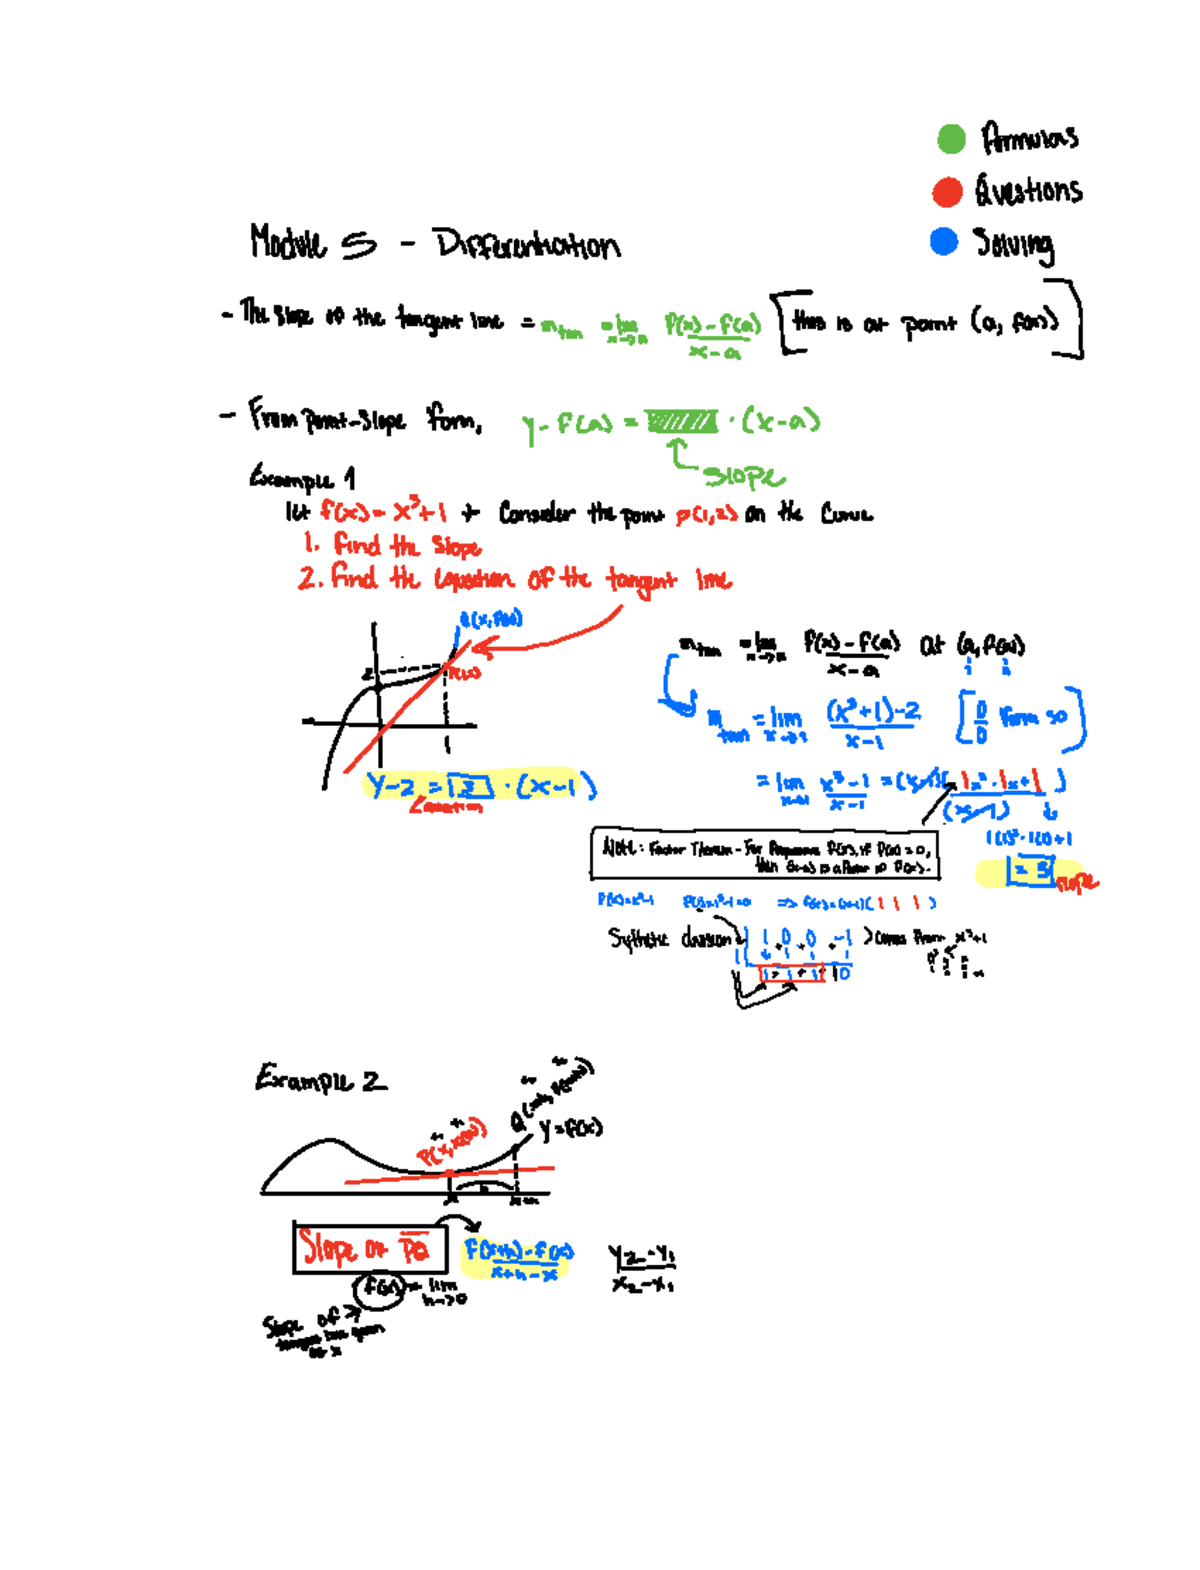 Formulas
Questions
Solving
Module 5 - Differentiation
- The slope of the tangent line = m tan = lim x→a f(x) - f(a) / x - a [this is at point (a, f(a))]
- From point-slope form, y - f(a) = · (x - a)
slope
Example 1
let f(x) = x³+1 + Consider the point p(1,2) on the curve
1. find the slope
2. find the equation of the tangent line
Q(x, f(x))
2
y-2 = 3 · (x-1)
Equation
m tan = lim x→a f(x) - f(a) / x - a at (a, f(a))
m tan = lim x→1 (x³+1)-2 / x-1 [0/0 form so]
= lim x→1 x³-1 / x-1 = (x-1)( 1x² + 1x + 1 ) / (x-1)
1(1)² + 1(1) + 1
= 3 slope
Note: Factor Theorem - For Polynomial P(x), if P(a) = 0,
then (x-a) is a factor of P(x).
P(x)=x³-1 P(1)=1³-1=0 => f(x)=(x-1)( 1 1 1 )
Sythetic division 1 1 0 0 -1 > comes from
1 1 1
1 1 1 0
Example 2
y = f(x)
h
x x+h
Slope of PQ f(x+h) - f(x) / x+h-x y₂-y₁ / x₂-x₁
f(x) = lim h→0
Slope of
tangent line given
at x